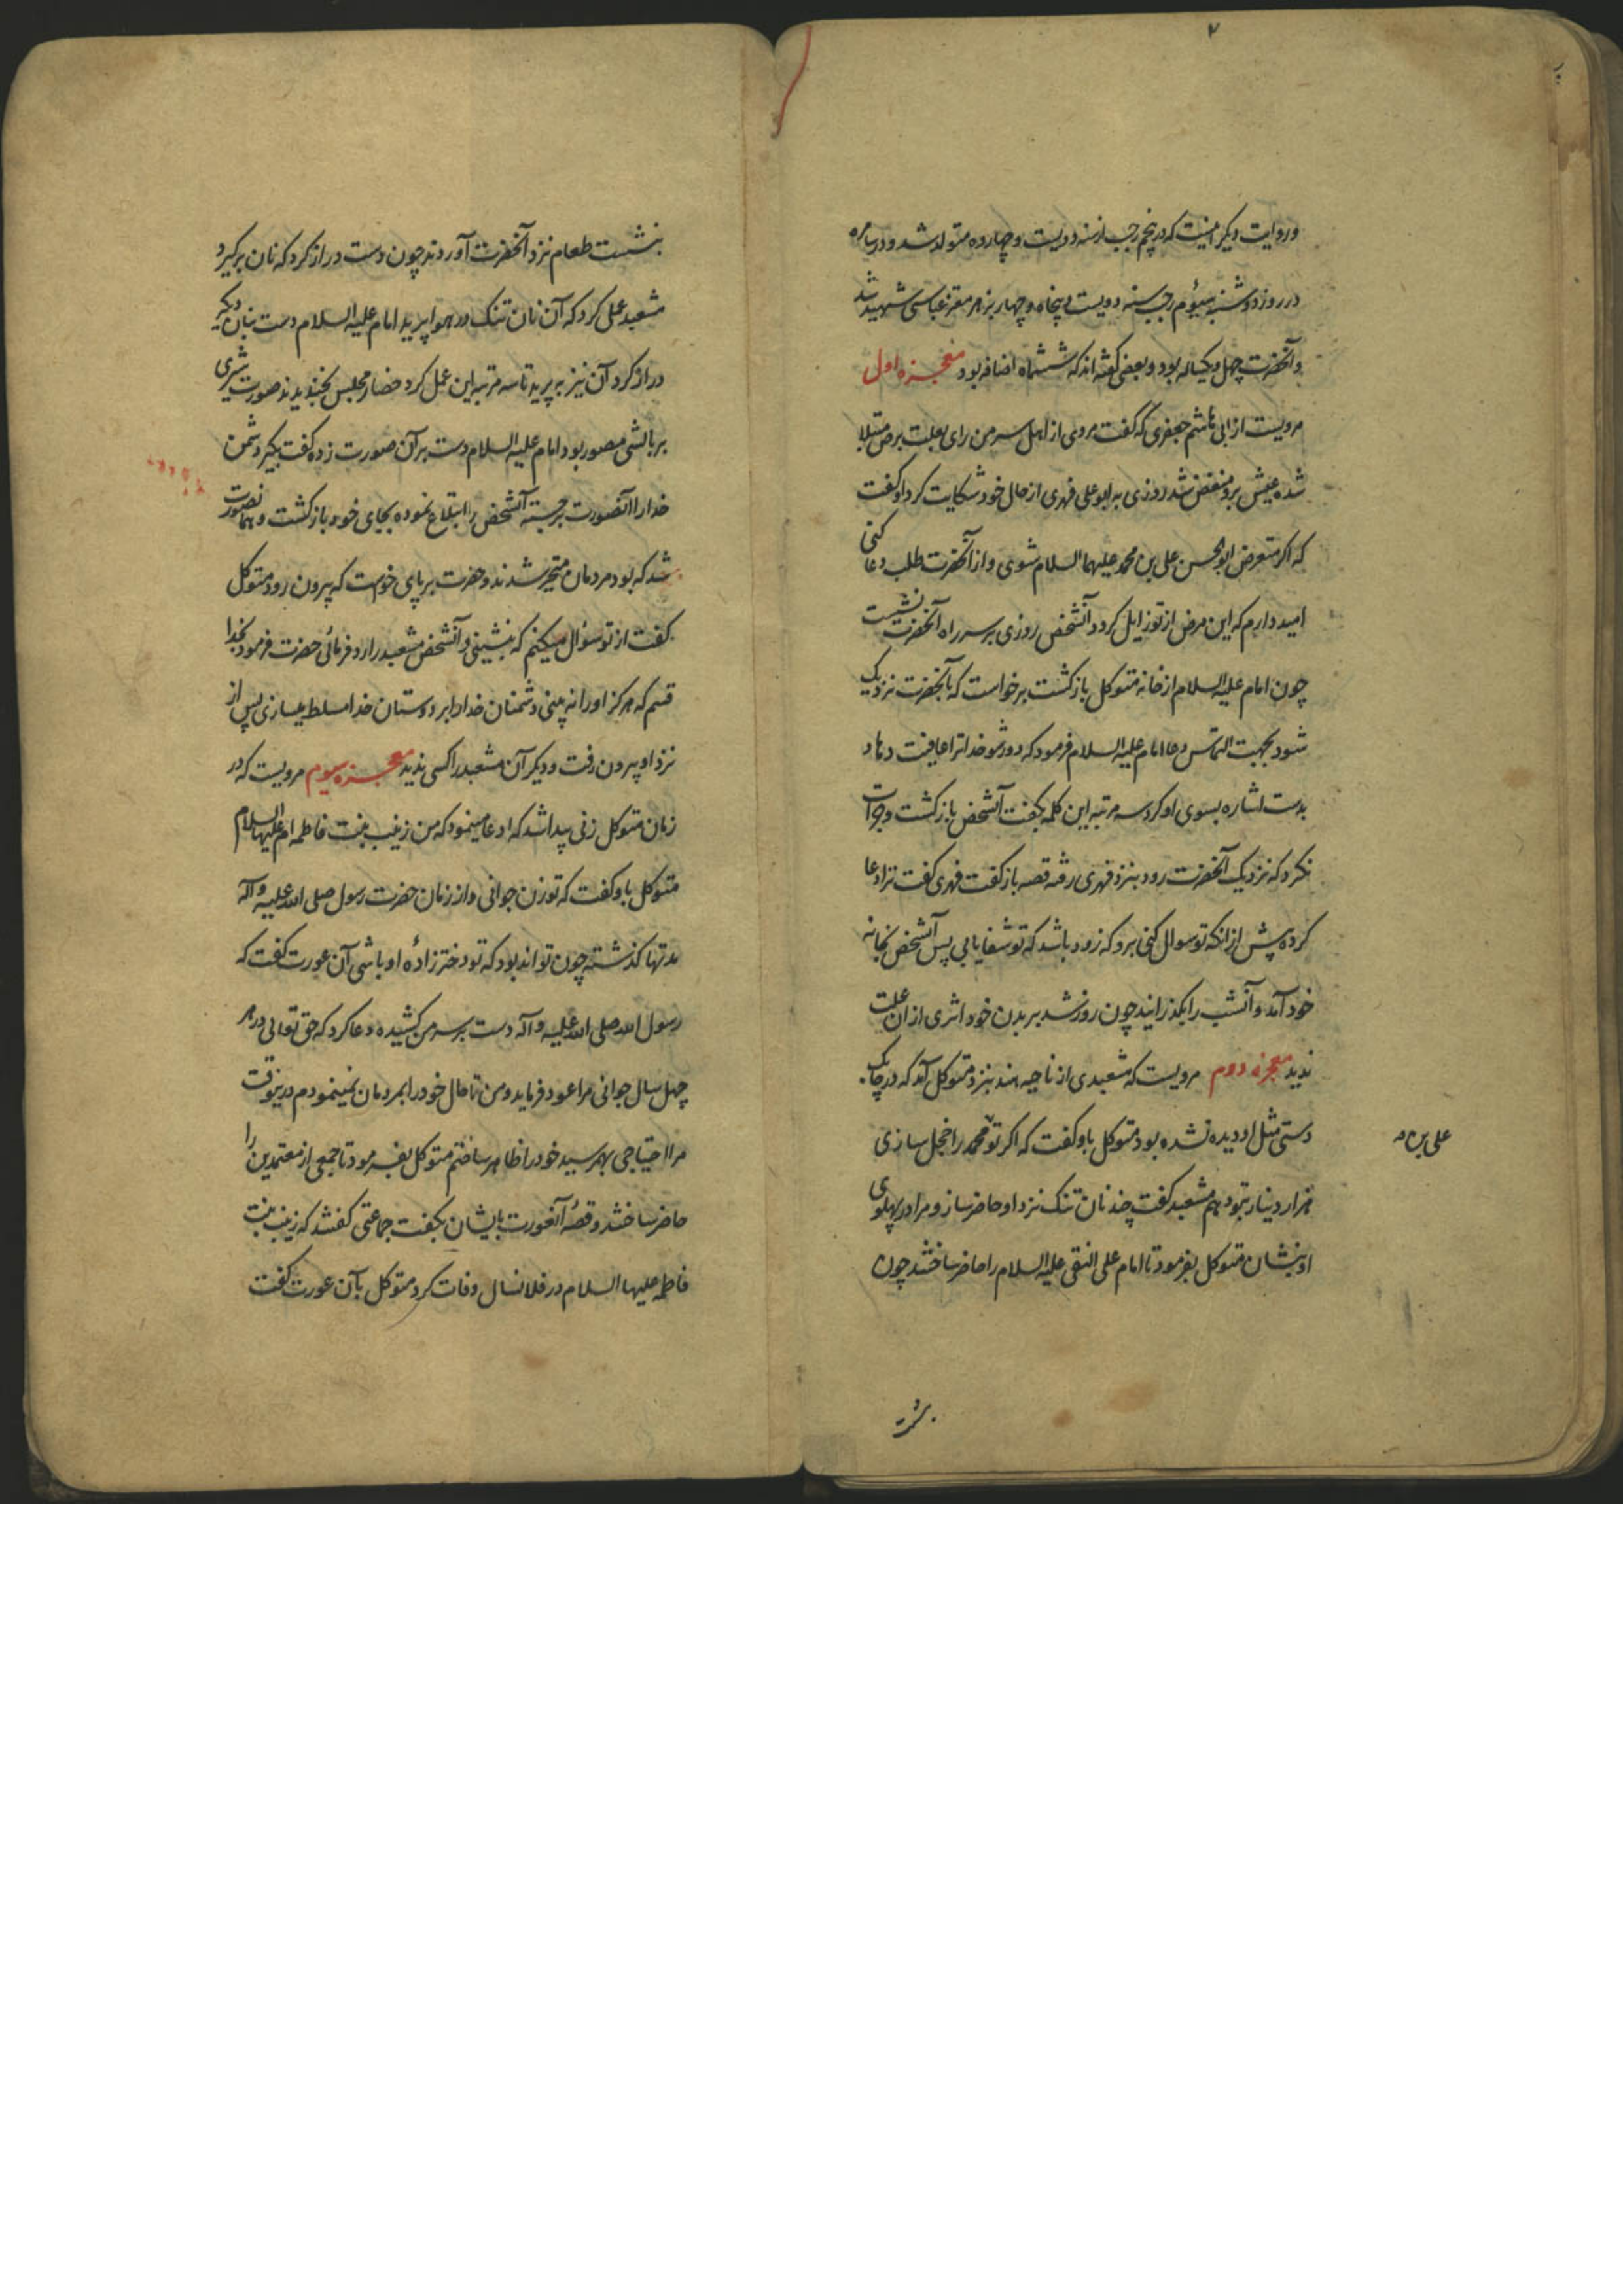 ۲
وروایت دیکر اینست که در پنجم رجب از سنه دویست و چهارده متولد شد و در سامره
در روز دوشنبه سیوم رجب سنه دویست و پنجاه و چهار بزهر معتز عباسی شهید شد
و آنحضرت چهل و یکساله بود و بعضی کفته اند که ششماه اضافه بود معجزه اول
مرویست از ابی هاشم جعفری که کفت مردی از اهل سر من رای بعلت برص مبتلا
شده عیش برو منغض شد روزی به ابو علی فهری از حال خود شکایت کرد او کفت
که اکر متعرض ابو الحسن علی بن محمد علیهما السلام شوی و از آنحضرت طلب دعا کنی
امید دارم که این مرض از تو زایل کردد آنشخص روزی بر سر راه آنحضرت نشست
چون امام علیه السلام از خانه متوکل بازکشت برخواست که بآنحضرت نزدیک
شود بجهت التماس دعا امام علیه السلام فرمود که دور شو خدا ترا عافیت دهاد
بدست اشاره بسوی او کرد سه مرتبه این کلمه بکفت آنشخص بازکشت و جرات
نکرد که نزدیک آنحضرت رود بنزد فهری رفته قصه باز کفت فهری کفت ترا دعا
کرده پیش از انکه تو سوال کنی برو که زود باشد که تو شفا یابی پس آنشخص بخانه
خود آمد و آنشب را بکذرانید چون روز شد بر بدن خود اثری از ان علت
ندید معجزه دوم مرویست که مشعبدی از ناحیه هند بنزد متوکل آمد که در چابک
دستی مثل او دیده نشده بود متوکل باو کفت که اکر تو محمد را خجل سازی
علی بن
هزار دینار بتو دهم مشعبد کفت چند نان تنک نزد او حاضر ساز و مرا در پهلوی
او بنشان متوکل بفرمود تا امام علی النقی علیه السلام را حاضر ساختند چون
بنشست
بنشست طعام نزد آنحضرت آوردند چون دست دراز کرد که نان برکیرد
مشعبد عملی کرد که آن نان تنک در هوا پرید امام علیه السلام دست بنان دیکر
دراز کرد آن نیز به پرید تا سه مرتبه این عمل کرد حضار مجلس بخندیدند صورت شیری
بر بالشی مصور بود امام علیه السلام دست بر آن صورت زده کفت بکیر دشمن
خدا را آنصورت برجسته آنشخص را ابتلاع نموده بجای خود بازکشت و همانصورت
شد که بود مردمان متحیر شدند و حضرت بر پای خواست که بیرون رود متوکل
کفت از تو سؤال میکنم که بنشینی و آنشخص مشعبد را رد فرمائی حضرت فرمود بخدا
قسم که هرکز او را نه بینی دشمنان خدا را بر دوستان خدا مسلط میسازی پس از
نزد او بیرون رفت و دیکر آن مشعبد را کسی ندید معجزه سیوم مرویست که در
زمان متوکل زنی پیدا شد که ادعا مینمود که من زینب بنت فاطمه ام علیها السلام
متوکل باو کفت که تو زن جوانی و از زمان حضرت رسول صلی الله علیه و آله
مدتها کذشته چون تواند بود که تو دختر زاده او باشی آن عورت کفت که
رسول الله صلی الله علیه و آله دست بر سر من کشیده دعا کرد که حق تعالی در هر
چهل سال جوانی مرا عود فرماید و من تا حال خود را بمردمان نمینمودم درینوقت
مرا احتیاجی بهم رسید خود را ظاهر ساختم متوکل بفرمود تا جمعی از معتمدین را
حاضر ساختند و قصه آنعورت بایشان بکفت جماعتی کفتند که زینب بنت
فاطمه علیها السلام در فلانسال وفات کرد متوکل بآن عورت کفت